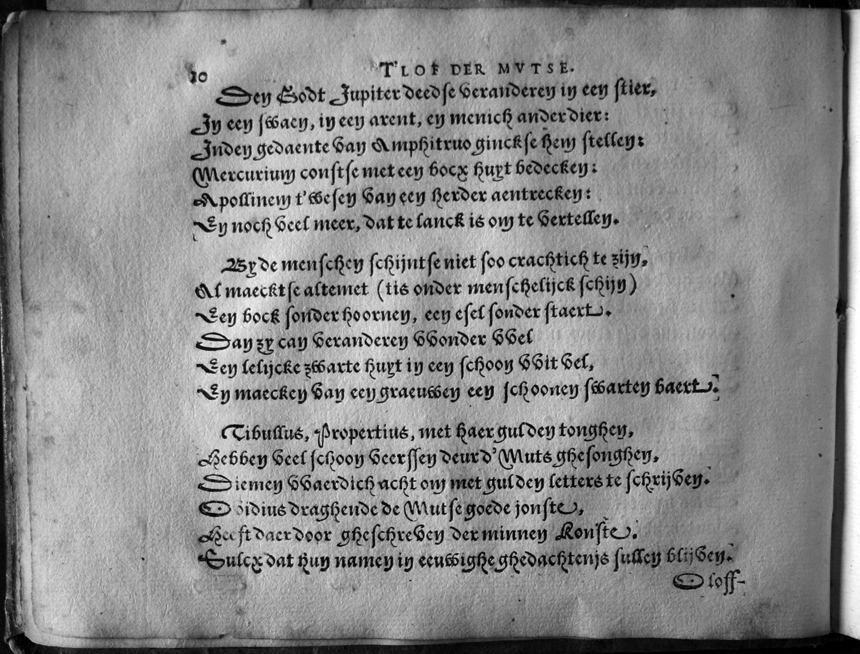 10
T'LOF DER MVTSE.
Den Godt Jupiter deedse veranderen in een stier,
In een swaen, in een arent, en menich ander dier:
Inden gedaente van Amphitruo ginckse hem stellen:
Mercurium constse met een bocx huyt bedecken:
Apollinem t'wesen van een herder aentrecken:
En noch veel meer, dat te lanck is om te vertellen.
By de menschen schijntse niet soo crachtich te zijn,
Al maecktse altemet (tis onder menschelijck schijn)
Een bock sonder hoornen, een esel sonder staert.
Dan zy can veranderen wonder wel
Een lelijcke zwarte huyt in een schoon wit vel,
En maecken van een graeuwen een schoonen swarten baert.
Tibullus, Propertius, met haer gulden tonghen,
Hebben veel schoon veerssen deur d'Muts ghesonghen,
Diemen waerdich acht om met gulden letters te schrijven.
Ovidius draghende de Mutse goede jonste,
Heeft daer door gheschreven der minnen Konste.
Sulcx dat hun namen in eeuwighe ghedachtenis sullen blijven.
O loff-